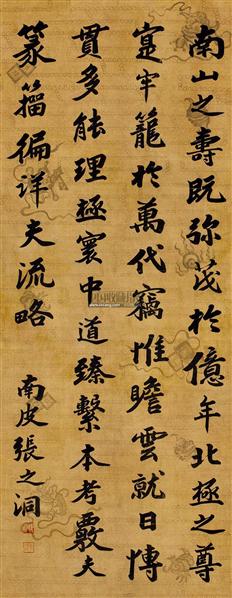 南山之壽既弥茂於億年北極之尊
寔牢籠於萬代竊惟瞻雲就日愽
貫多能理極寰中道臻繫本考覈夫
篆籀徧詳夫流略
南皮張之洞